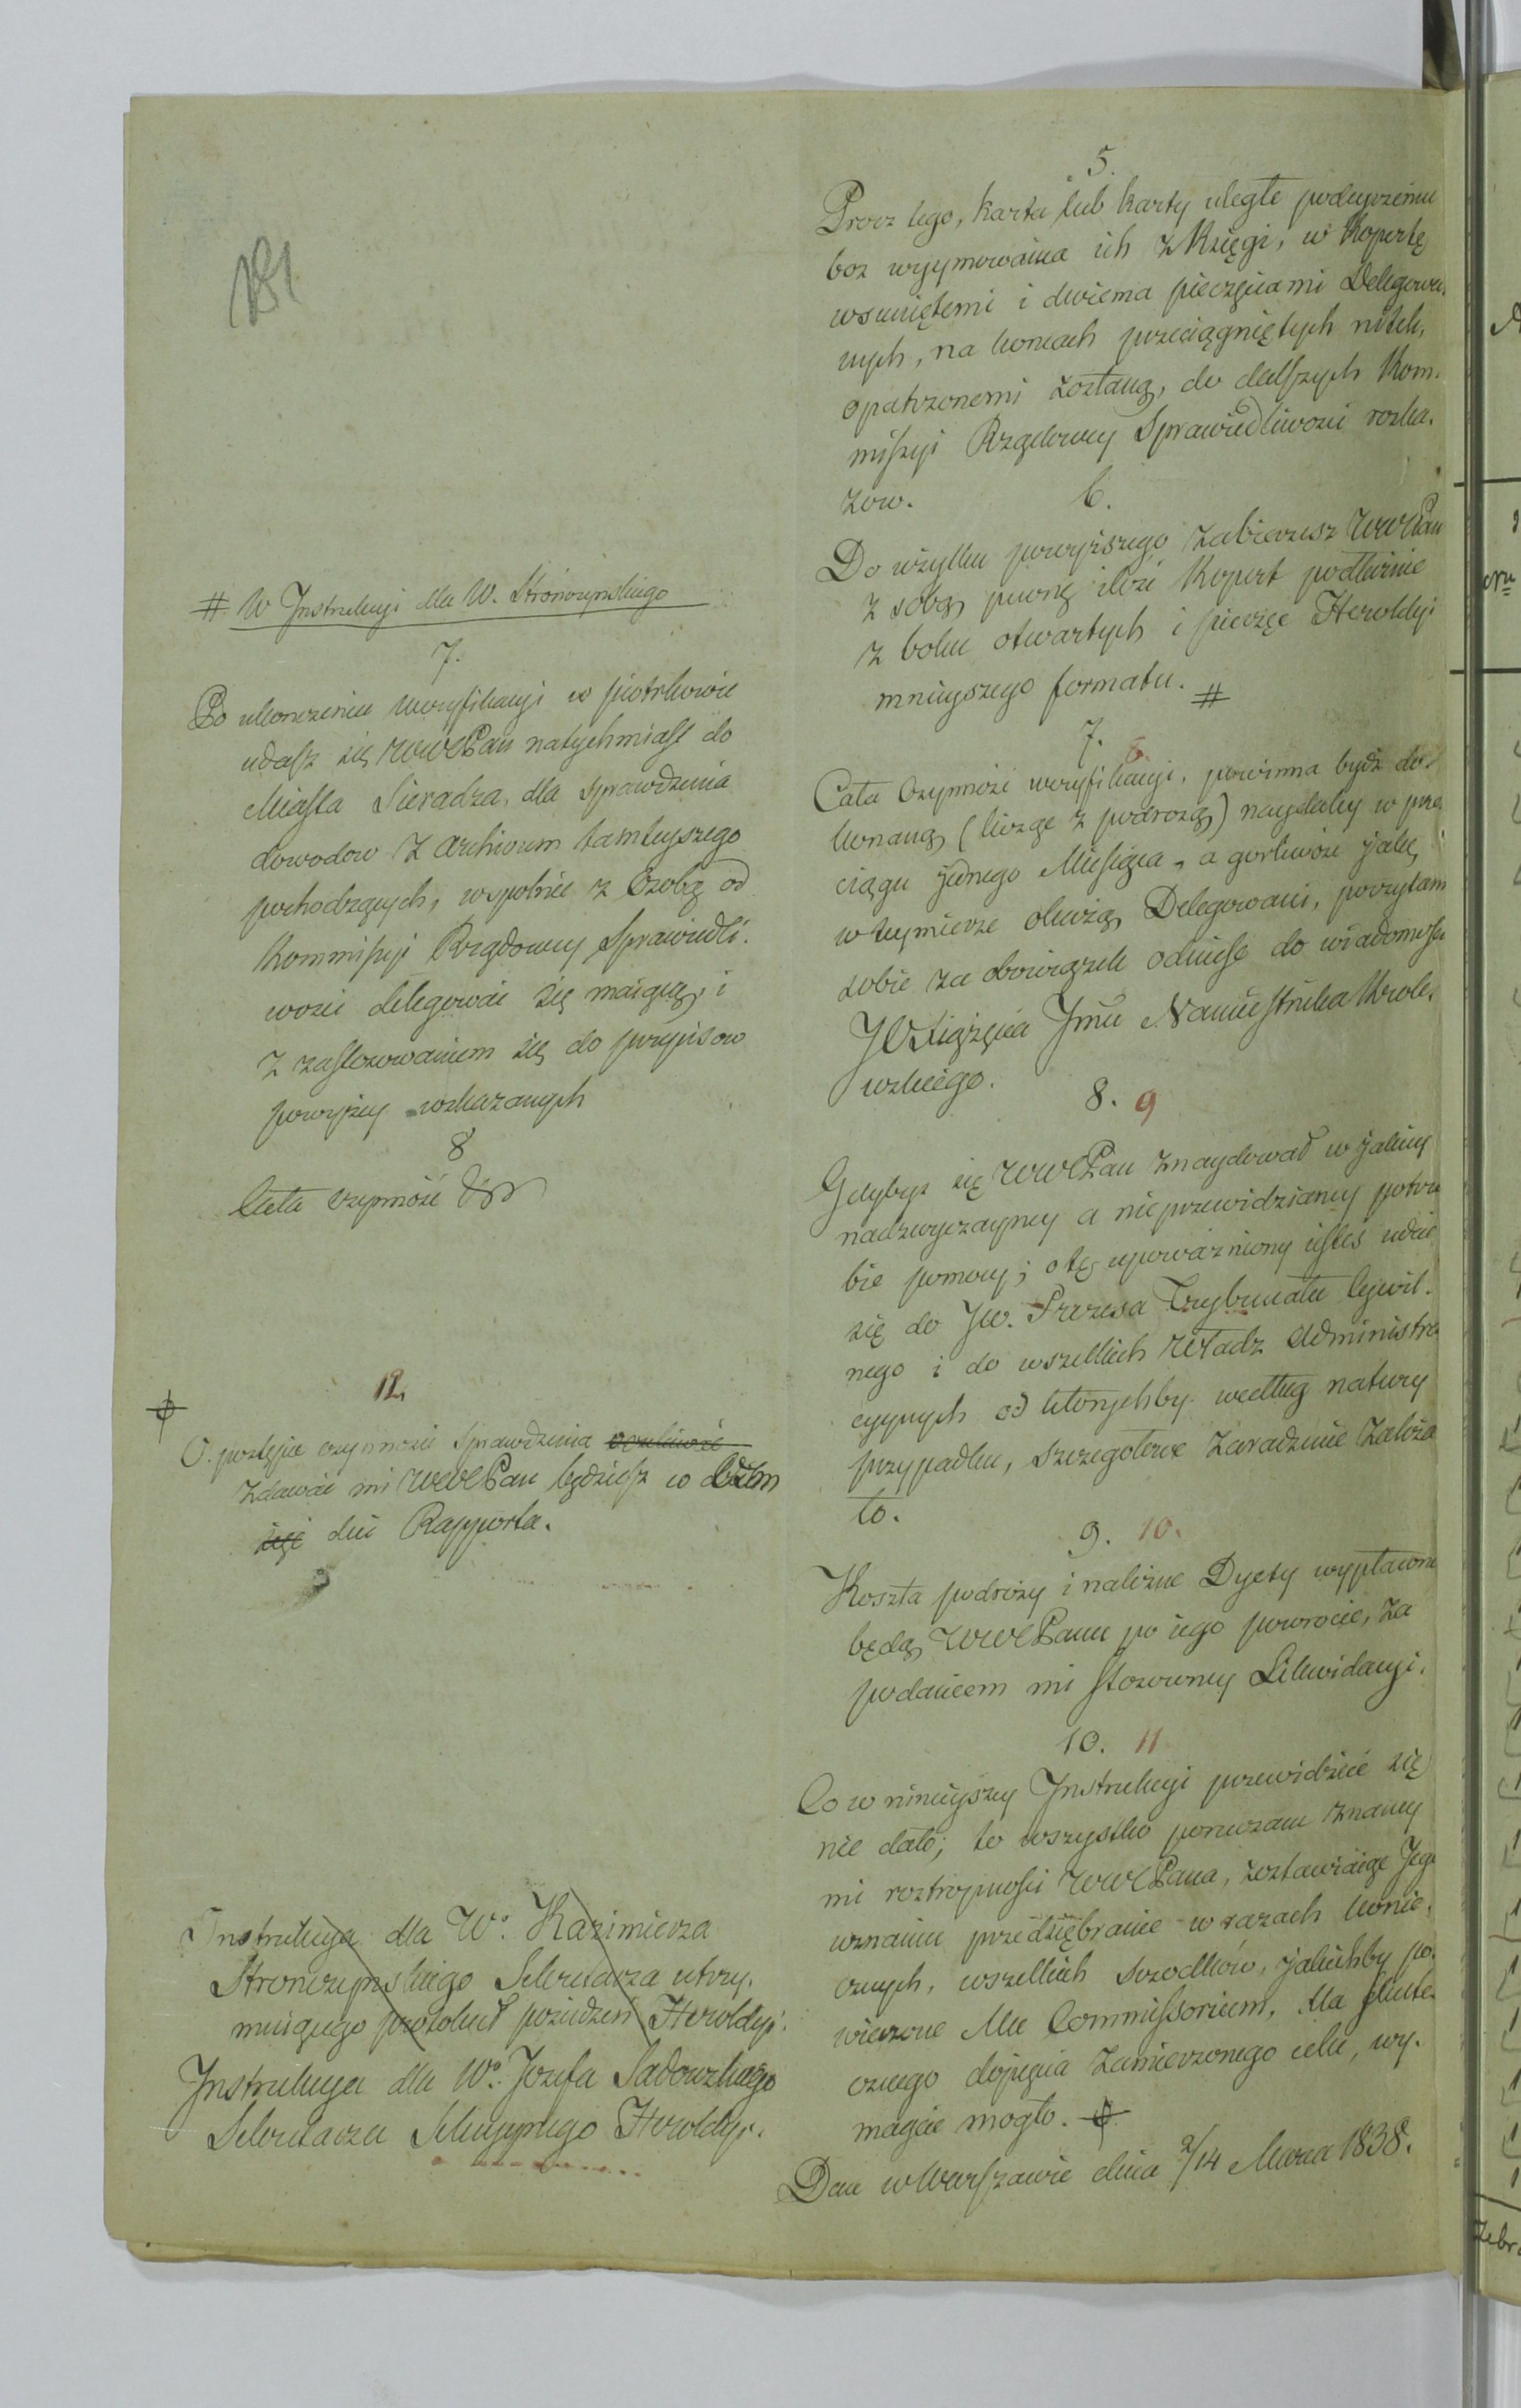 181
# W Instrukcyi dla W. Strończyńskiego
7.
Po ukonczeniu weryfikacyi w Piotrkowie
udasz się WWPan natychmiast do
Miasta Sieradza, dla sprawdzenia
dowodow z Archivum tamteyszego
pochodzących, wspolnie z Osobą od
Kommissyi Rządowey Sprawiedli-
wosci delegować się maiącą, i
z zastosowaniem się do przepisow
powyżey wskazanych
8
Cała czynność
12.
O postępie czynności sprawdzenia
zdawać mi WWPan będziesz w
dni Rapporta.
Instrukcya dla Wo. Kazimierza
Stronczynskiego Sekretarza utrzy-
muiącego protokuł posiedzeń Heroldyi.
Instrukcya dla Wo. Jozefa Sadowskiego
Sekretarza Heroldyi.
5.
Procz tego, karta lub karty uległe podeyrzeniu
bez wyymowania ich z Księgi, w Kopertę
wsuniętemi i dwiema pieczęciami Delegowa-
nych, na koncach przeciągniętych nitek,
opatrzonemi zostaną, do dalszych Kom-
missyi Rządowey Sprawiedliwosci rozka-
zow.
6.
Do użytku powyższego zabierzesz WWPan
z sobą pewną ilość Kopert podłużnie
z boku otwartych i pieczęć Heroldyi
mnieyszego formatu. #
7. 8.
Cała czynność weryfikacyi, powinna bydź do-
konaną (licząc z podrożą) naydaley w prze
ciągu jednego Miesiąca, a gorliwość jaką
w teymierze okażą Delegowani, poczytam
sobie za obowiązek odnieść do wiadomości
JO Xiążęcia Jmci Namiestnika Krole-
wskiego.
8. 9
Gdybyś się WWPan znaydował w jakiey
nadzwyczayney a nieprzewidzianey potrze
bie pomocy; o tę upoważniony jesteś udać
się do JW. Prezesa Trybunału Cywil-
nego i do wszelkich Władz Administra
cyynych od ktorychby według natury
przypadku, szczegołowe zaradzenie zależa
ło.
9. 10.
Koszta podroży i należne Dyety wypłacone
będą WWPanu po iego powrocie, za
podaniem mi stosowney Likwidacyi.
10. 11
Co w ninieyszey Instrukcyi przewidzieć się
nie dało; to wszystko poruczam znaney
mi roztropności WWPana, zostawiaiąc Jego
uznaniu przedsiębranie w razach konie-
cznych, wszelkich srzodków, jakichby po-
wierzone Mu Commissorium, dla skute-
cznego dopięcia zamierzonego celu, wy-
magać mogło.
Dan w Warszawie dnia 2/14 Marca 1838.